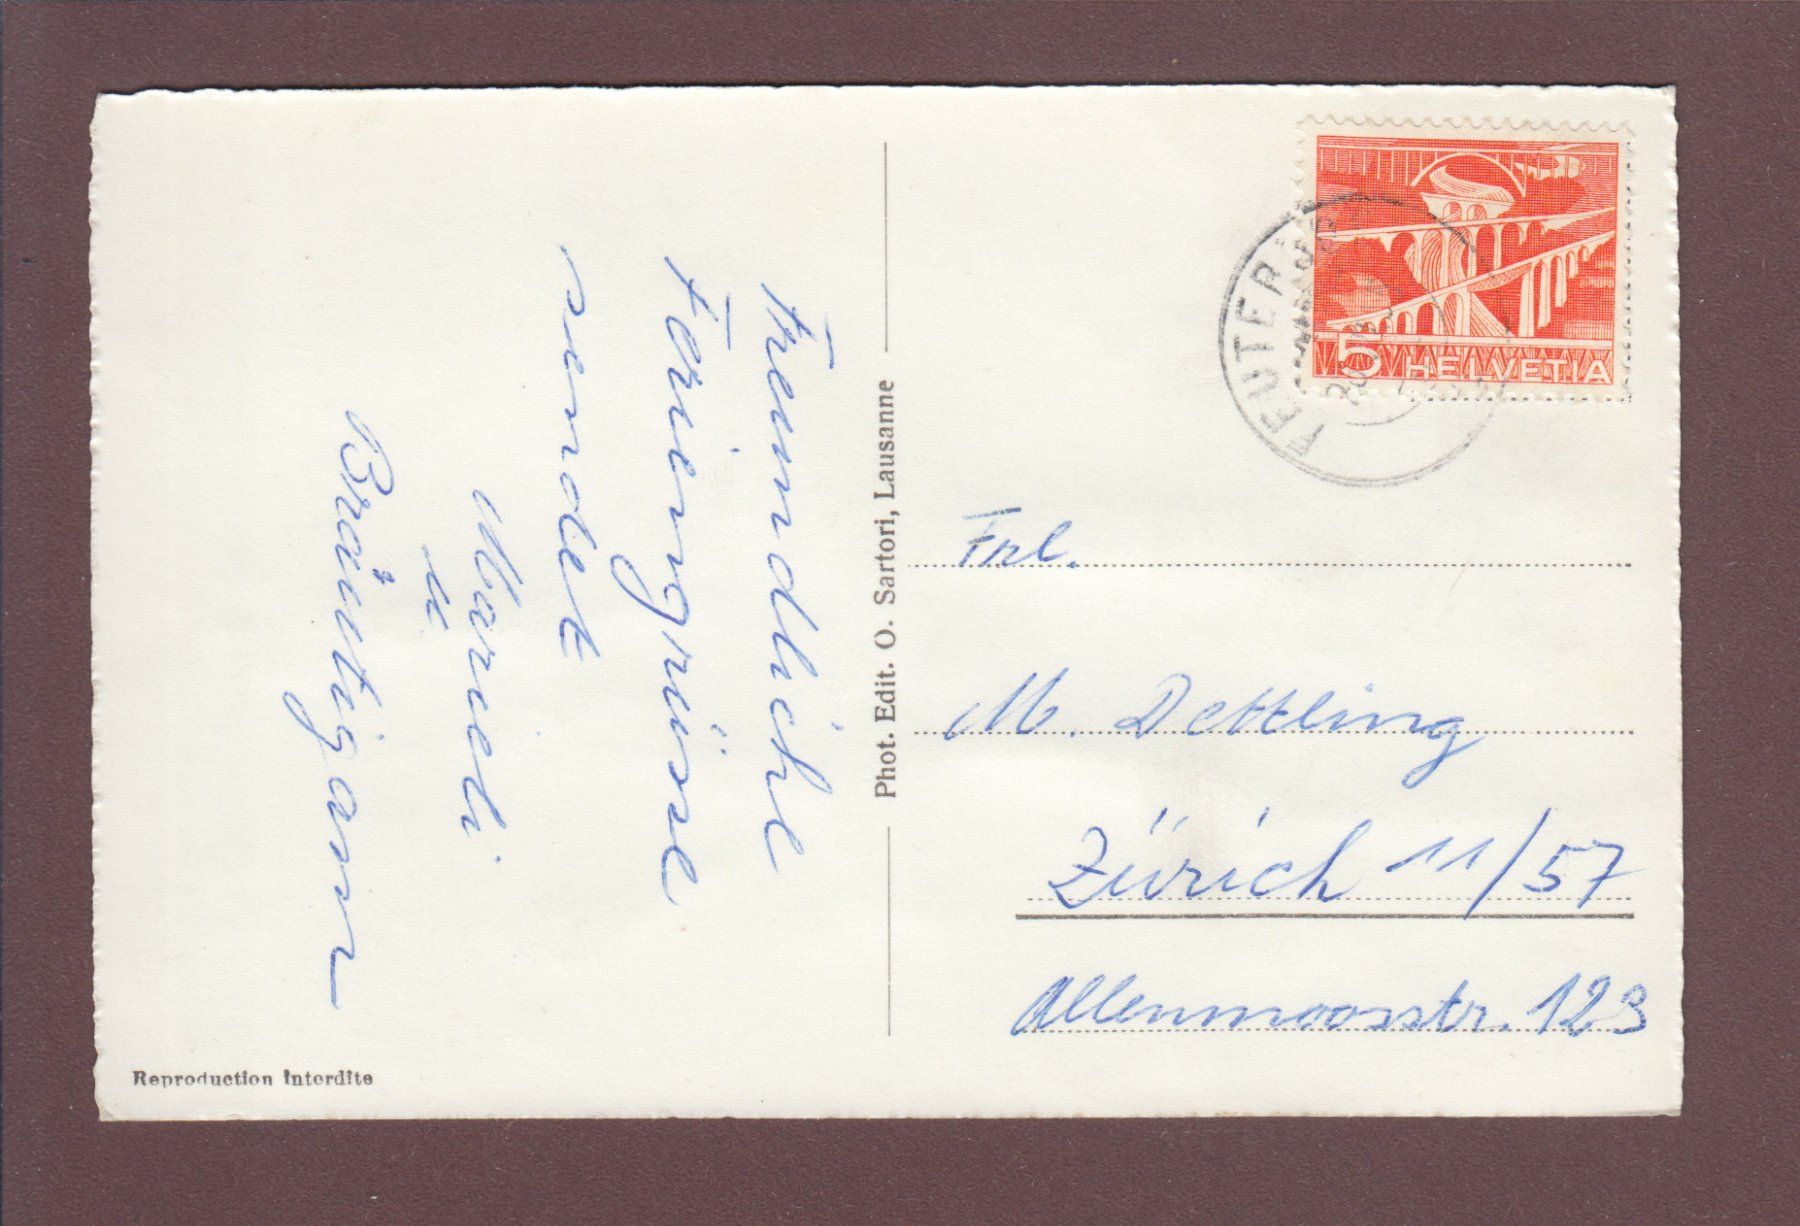 Freundliche
Feriengrüsse
sendet
Marieli
u
Bräutigam
Phot. Edit. O. Sartori, Lausanne
Reproduction interdite
5 HELVETIA
Frl.
M. Dettling
Zürich 11/57
Allenmoosstr. 123